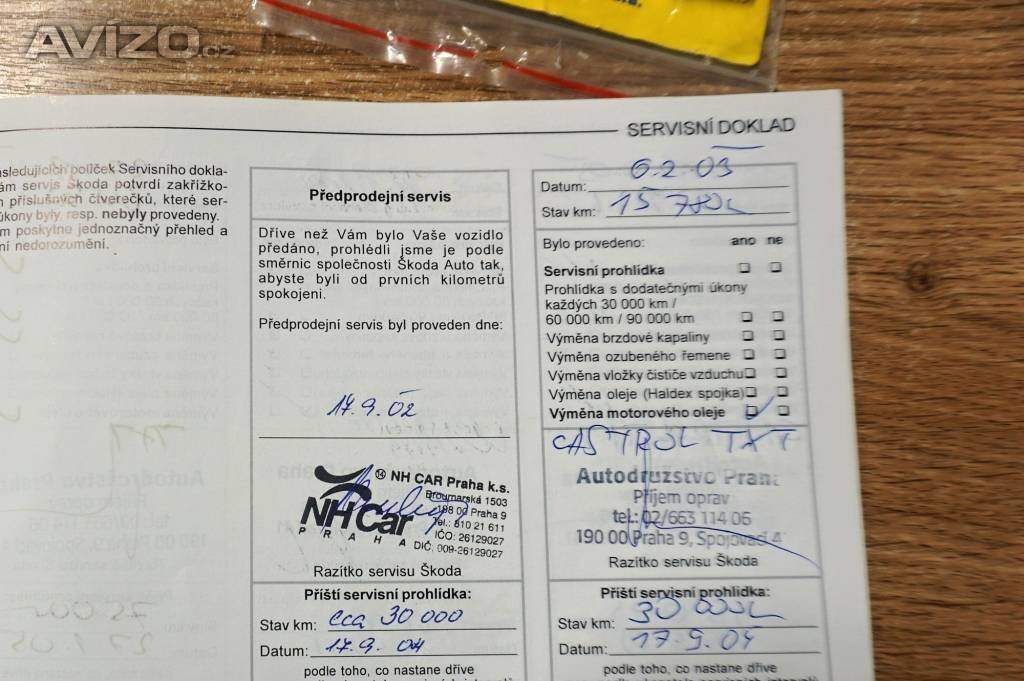 AVÍZO.cz
SERVISNÍ DOKLAD
ásledujících políček Servisního dokla-
ám servis Škoda potvrdí zakřížko-
příslušných čtverečků, které ser-
úkony byly, resp. nebyly provedeny.
m poskytne jednoznačný přehled a
ní nedorozumění.
Předprodejní servis
Dříve než Vám bylo Vaše vozidlo
předáno, prohlédli jsme je podle
směrnic společnosti Škoda Auto tak,
abyste byli od prvních kilometrů
spokojeni.
Předprodejní servis byl proveden dne:
17.9.02
NH CAR Praha k.s.
Broumarská 1503
198 00 Praha 9
Tel.: 810 21 611
IČO: 26129027
DIČ: 009-26129027
NH Car
PRAHA
Razítko servisu Škoda
Příští servisní prohlídka:
Stav km: cca 30 000
Datum: 17.9.04
podle toho, co nastane dříve
Datum: 6.2.03
Stav km: 15 780
Bylo provedeno: ano ne
Servisní prohlídka
Prohlídka s dodatečnými úkony
každých 30 000 km /
60 000 km / 90 000 km
Výměna brzdové kapaliny
Výměna ozubeného řemene
Výměna vložky čističe vzduchu
Výměna oleje (Haldex spojka)
Výměna motorového oleje
CASTROL TXT
Autodružstvo Praha
Příjem oprav
tel.: 02/663 114 06
190 00 Praha 9, Spojovací 4
Razítko servisu Škoda
Příští servisní prohlídka:
Stav km: 30 000
Datum: 17.9.04
podle toho, co nastane dříve